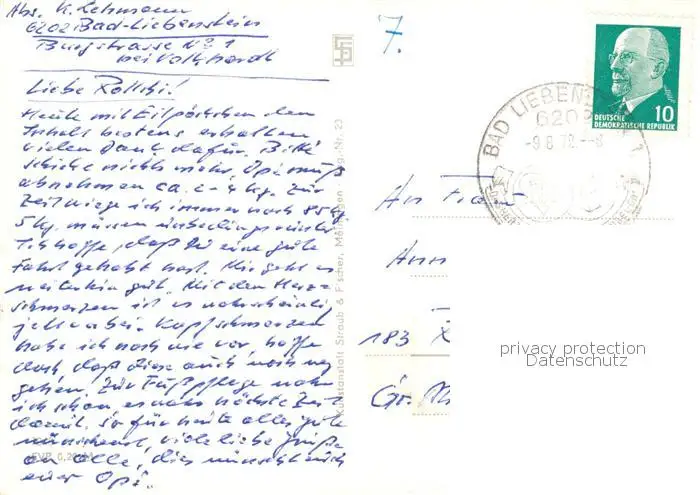 Abs. K. Lehmann
6202 Bad-Liebenstein
Burgstrasse No 1
bei Volkhardt
Liebe Rollki!
Heute mit Eilpäckchen den
Inhalt bestens erhalten
vielen Dank dafür. Bitte
schicke nichts mehr, Opi muß
abnehmen ca. 2-4 kg. Zur
Zeit wiege ich immer noch 85 kg
5 kg müssen unbedingt runter
Ich hoffe, daß Du eine gute
Fahrt gehabt hast. Mir geht es
weiterhin gut. Mit den Herz-
schmerzen ist es wahrscheinlich
jetzt vorbei. Kopfschmerzen
habe ich nach wie vor, hoffe
doch, daß diese auch noch weg
gehen. Zur Fußpflege nahm
ich schon, es war höchste Zeit
damit. So für heute alles gute
wünschend, viele liebe Grüße
an alle, dies wünscht euch
euer Opi.
EVP 0,20
Kunstanstalt Straub & Fischer, Meiningen Reg.-Nr. 23
7.
DEUTSCHE
DEMOKRATISCHE REPUBLIK 10
BAD LIEBENSTEIN 1
6202
-9.8.72.--8
An Frau
Ann
183 R
Gr. M
privacy protection
Datenschutz